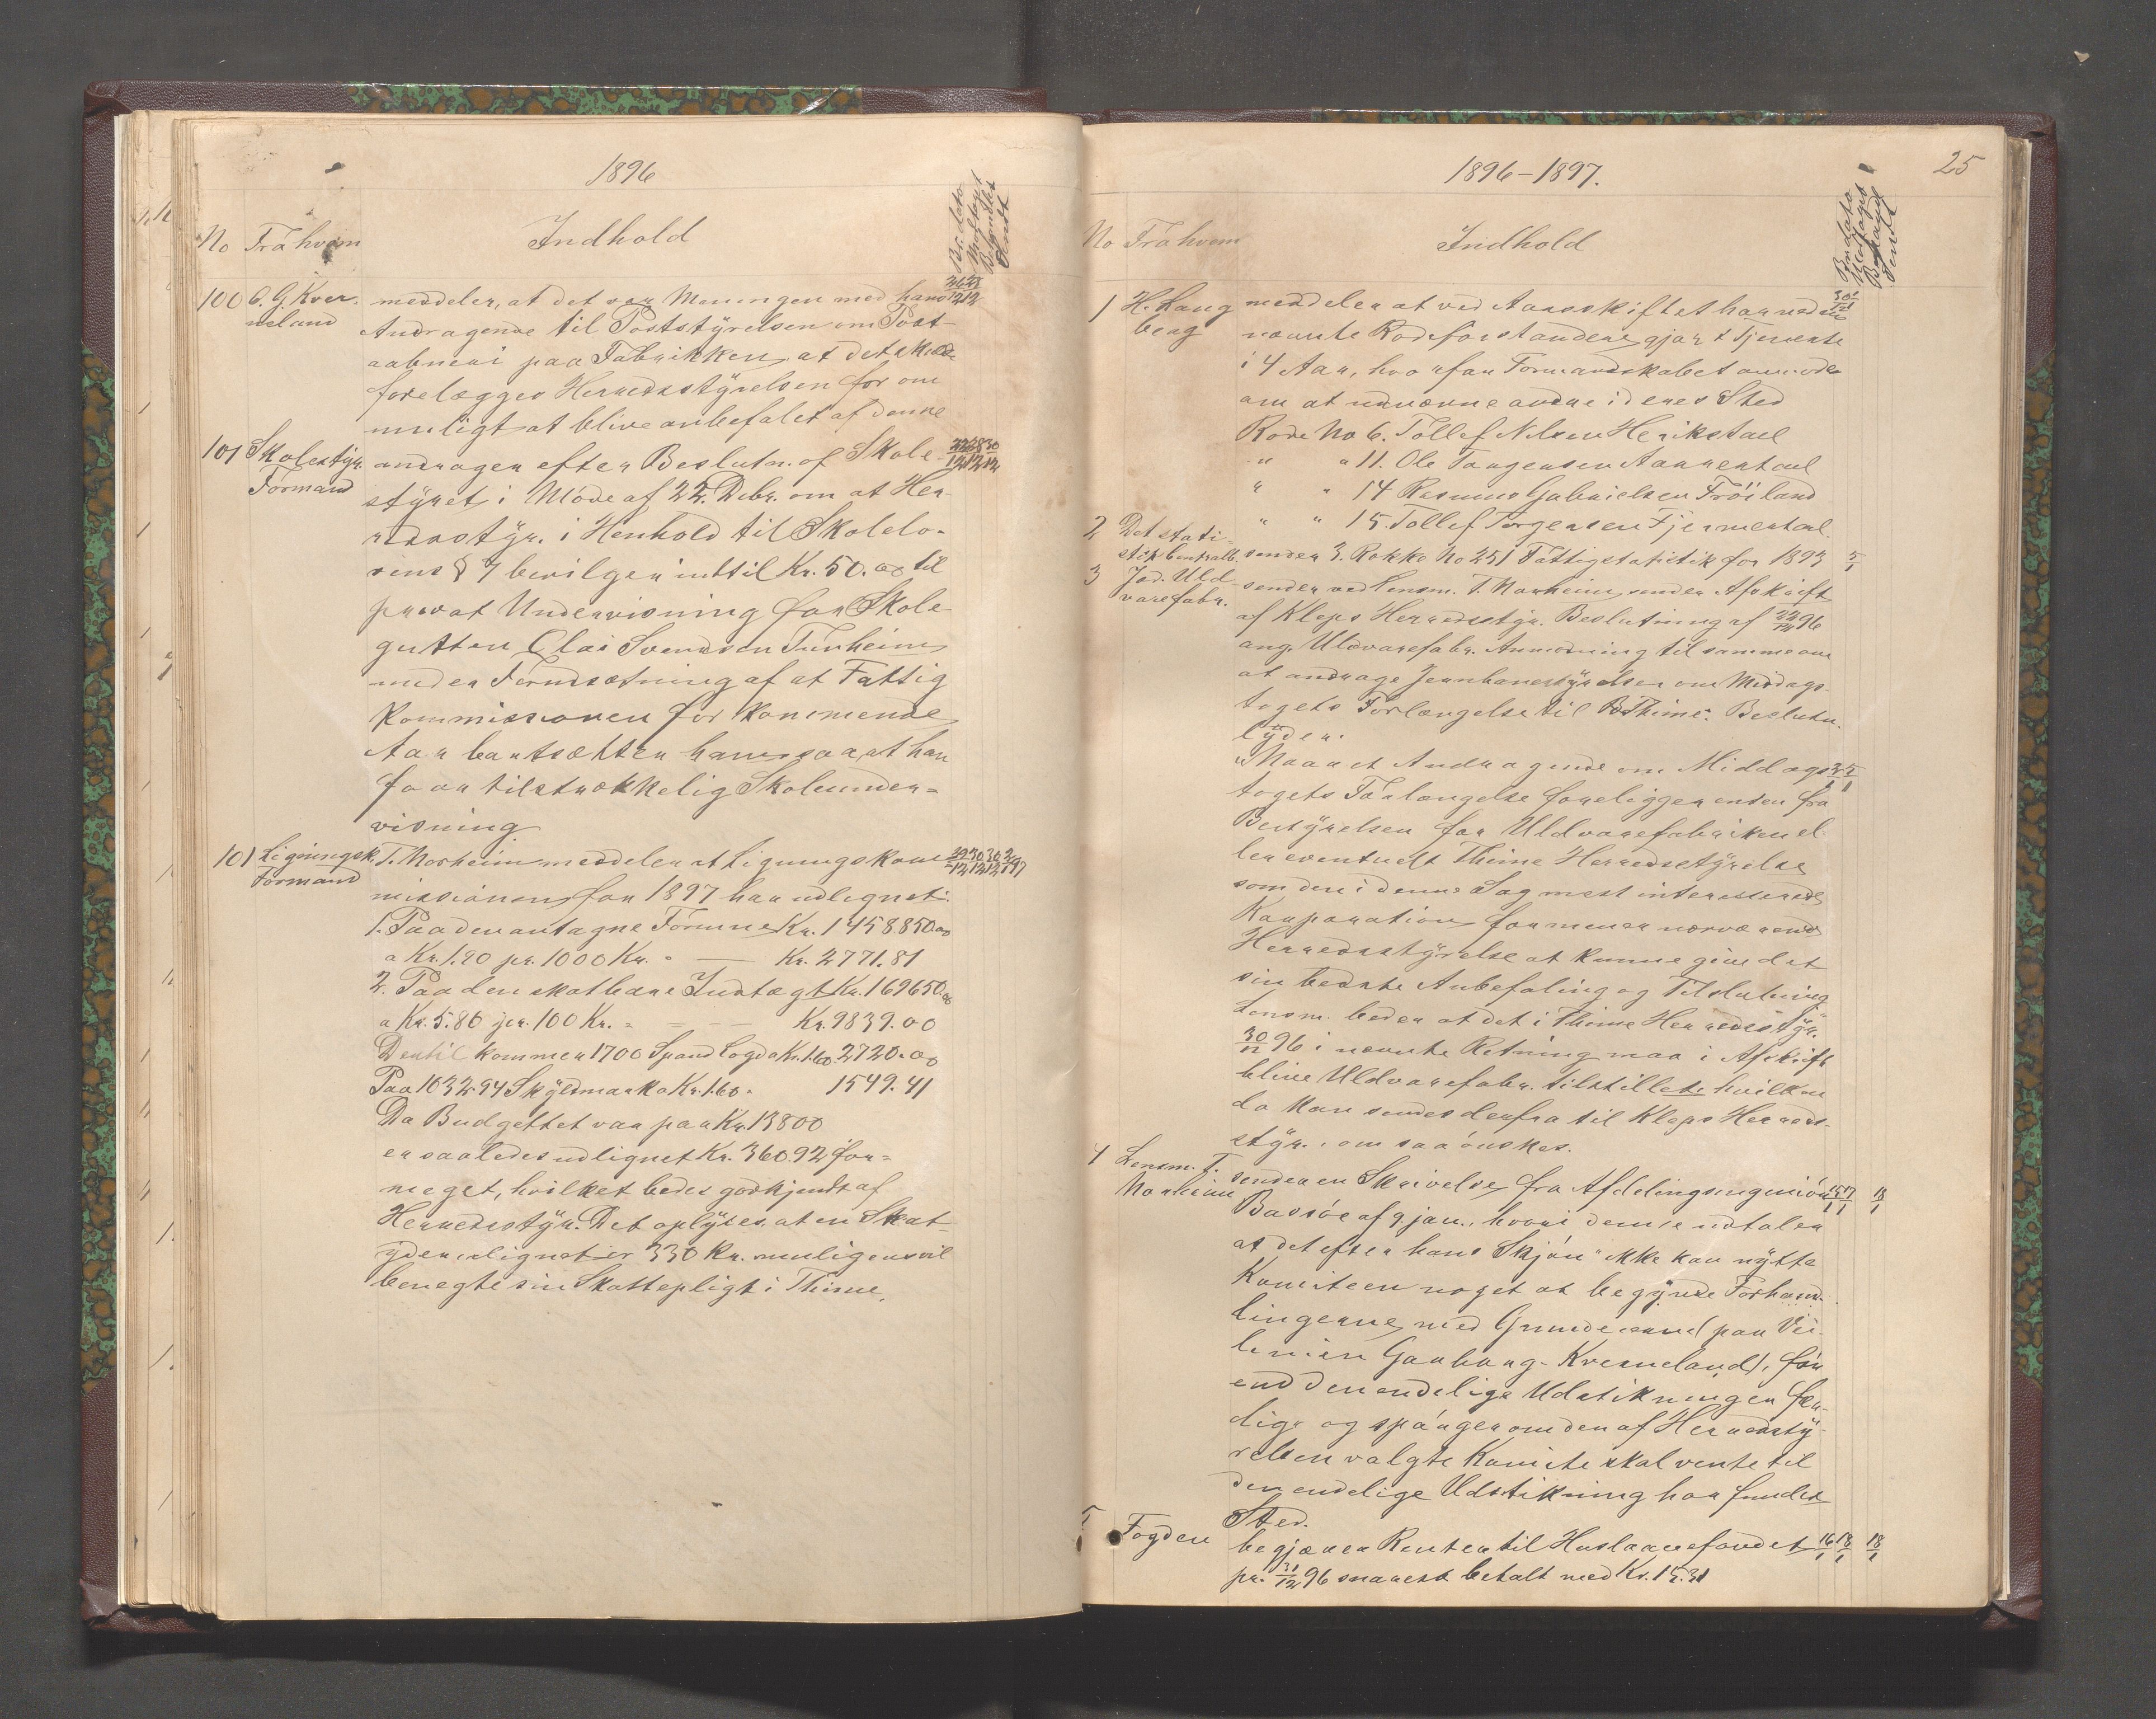 1896
No Fra hvem Indhold Br. dato Modtaget Behandlet Sendt
100 O. G. Kver- meddeler, at det var Meningen med hans
neland Andragende til Poststyrelsen om Post-
aabneri paa Fabrikken, at det skulde
forelægges Herredsstyrelsen for om
muligt at blive anbefalet af denne
101 Skolestyr. andrager efter Beslutn. af Skole-
Formand styret i Møde af 22. Debr. om at Her-
redsstyr. i Henhold til Skolelo-
vens § 7 bevilger indtil Kr. 50.00 til
privat Undervisning for Skole
gutten Olai Svendsen Tunheim
under Forudsætning af at Fattig
Kommissionen for kommende
Aar bortsætter ham saa, at han
faar tilstrækkelig Skoleunder-
visning
101 Ligningsk. T. Norheim meddeler at Ligningskom-
Formand missionen for 1897 har udlignet:
1. Paa den antagne Formue Kr. 1458850.00
a Kr. 1.90 pr. 1000 Kr. - Kr. 2771.81
2. Paa den skatbare Indtægt Kr. 169650.00
a Kr. 5.80 pr. 100 Kr. - Kr. 9839.00
Dertil kommer 1700 Spand Logd a Kr. 1.60 2720.00
Paa 1032.94 Skyldmark a Kr. 1.60. 1549.41
Da Budgettet var paa Kr. 13800
er saaledes udlignet Kr. 360.92 for-
meget, hvilket bedes godkjendt af
Herredsstyr. Det oplyses at en Skat-
yder udlignet er 330 Kr. muligens vil
benegte sin Skattepligt i Thime.
1896-1897. 25
No Fra hvem Indhold Br. dato Modtaget Behandlet Sendt
1 H. Haug meddeler at ved Aarsskiftet har ned
berg nævnte Rodeforstandere gjort Tjeneste
i 4 Aar, hvorfor Formandskabet anmodes
om at udnævne andre i deres Sted
Rode No 6. Tollef Nilsen Herikstad
" " 11. Ole Tørgensen Aarrestad
" " 14 Rasmus Gabrielsen Fröiland
" " 15. Tollef Torgersen Fjermestad.
2 Det stati-
stisk Centralb. sender 3. Række No 251 Fattigstatistik for 1893 5/1
3 Jad. Uld- sender ved Lensm. T. Norheim sender Afskrift
varefabr. af Kleps Herredsstyr. Beslutning af 22/12 96
ang. Uldvarefabr. Anmodning til samme om
at andrage Jernbanestyrelsen om Middags-
togets Forlængelse til Thime. Beslutn.
lyder:
"Naar et Andragende om Middags-
togets Forlængelse foreligger enten fra
Bestyrelsen for Uldvarefabrikken el-
ler eventuelt Thime Herredsstyrelse
som den i denne Sag mest interesserede
Korporation formener nærværende
Herredsstyrelse at kunne give det
sin bedste Anbefaling og Tilslutning
Lensm. beder at det i Thime Herredsstyr.
30/12 96 i nævnte Retning maa i Afskrift
blive Uldvarefabr. tilstillet, hvilken
da kan sendes derfra til Kleps Herreds-
styr. om saa önskes.
4 Lensm. T. sender en Skrivelse fra Afdelingsingeniör
Norheim Bassöe af 9 jan., hvori denne udtaler
at det efter hans Skjön "ikke kan nytte
Komiteen noget at begynde Forhand-
lingerne med Grundeierne paa Vei-
linien Gaubarg-Kverneland, för
end den endelige Udstikning er fær-
dig og spörger om den af Herredssty-
relsen valgte Komite skal vente til
den endelige Udstikning har fundet
Sted.
5 Fogden begjærer Renten til Huslaanefondet 16/1 18/1 18/1
pr. 31/12 96 snarest betalt med Kr. 15.31